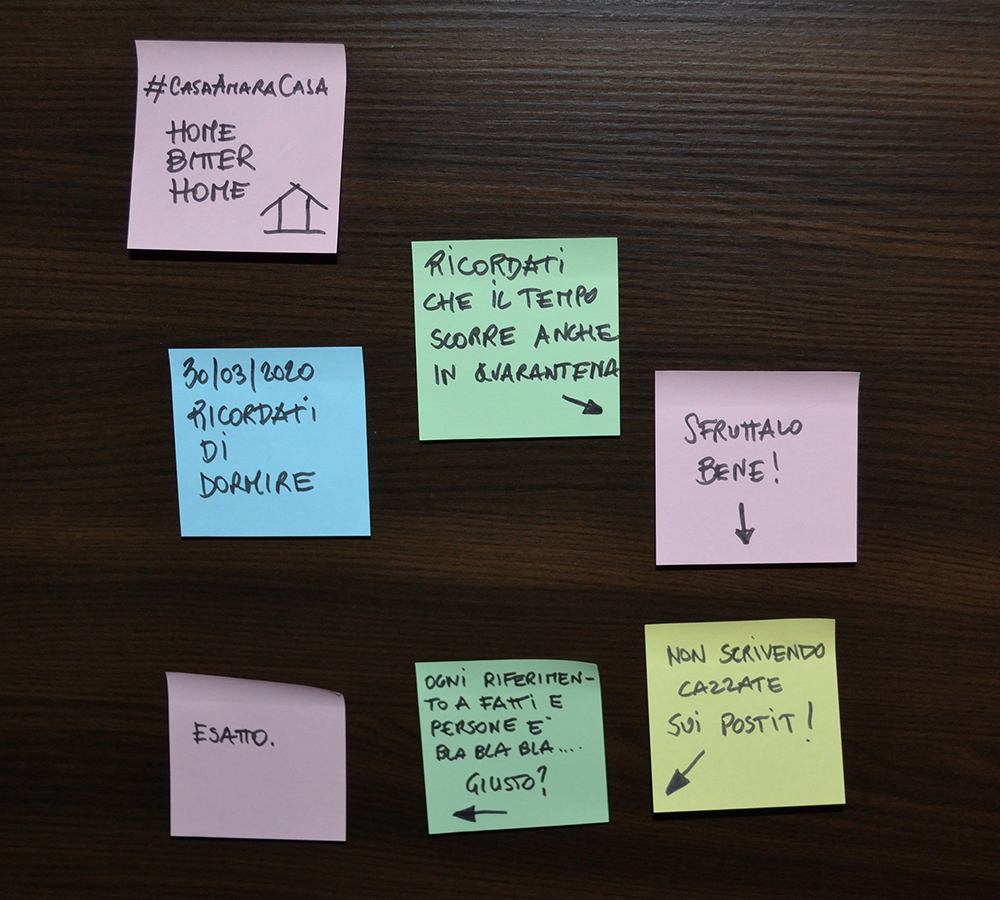 #CASAAMARACASA
HOME
BITTER
HOME
30/03/2020
RICORDATI
DI
DORMIRE
RICORDATI
CHE IL TEMPO
SCORRE ANCHE
IN QUARANTENA
SFRUTTALO
BENE!
NON SCRIVENDO
CAZZATE
SUI POSTIT!
OGNI RIFERIMEN-
TO A FATTI E
PERSONE E`
BLA BLA BLA....
GIUSTO?
ESATTO.